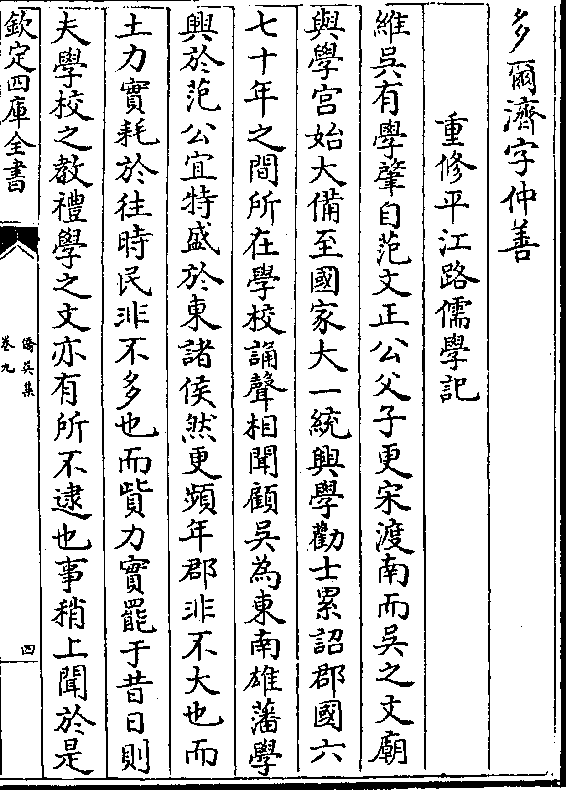 多爾濟字仲善
重修平江路儒學記
維吳有學肇自范文正公父子更宋渡南而吳之文廟
與學宮始大備至國家大一統興學勸士累詔郡國六
七十年之間所在學校誦聲相聞顧吳為東南雄藩學
興於范公宜特盛於東諸侯然更頻年郡非不大也而
土力實耗於往時民非不多也而貲力實罷于昔日則
夫學校之教禮學之文亦有所不逮也事稍上聞於是
欽定四庫全書
僑吳集
卷九
四